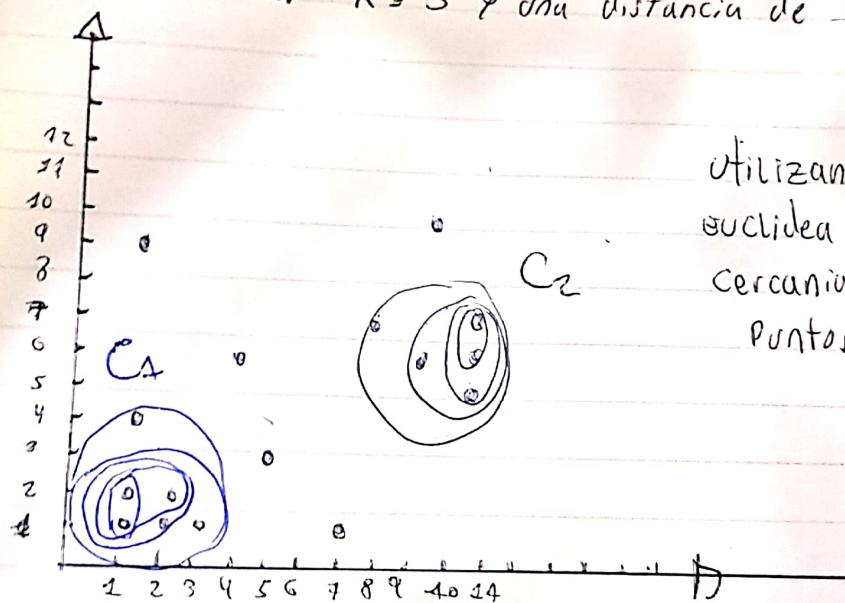 K = 3 y una distancia de
12
11
10
9
8
7
6
5
4
3
2
1
C1
C2
utilizan
euclidea
cercania
Puntos
1 2 3 4 5 6 7 8 9 10 11